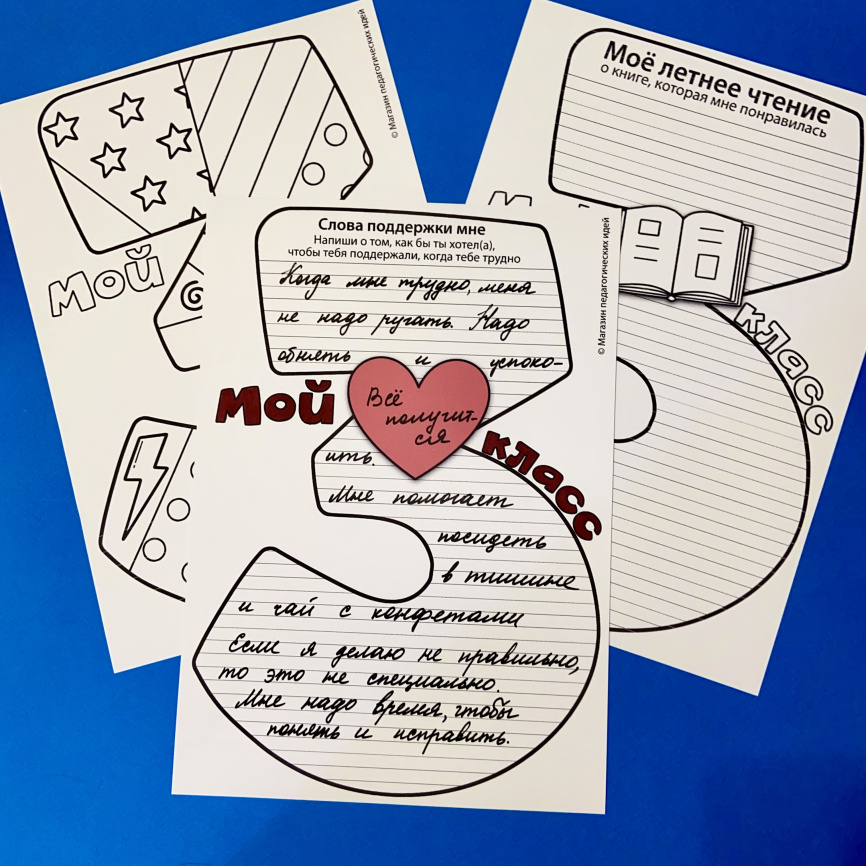 © Магазин педагогических идей
Мой
Моё летнее чтение
о книге, которая мне понравилась
класс
© Магазин педагогических идей
Слова поддержки мне
Напиши о том, как бы ты хотел(а),
чтобы тебя поддержали, когда тебе трудно
Когда мне трудно, меня
не надо ругать. Надо
обнять и успоко-
Мой
Всё
получит-
ся
класс
ить.
Мне помогает
посидеть
в тишине
и чай с конфетами
Если я делаю не правильно,
то это не специально.
Мне надо время, чтобы
понять и исправить.